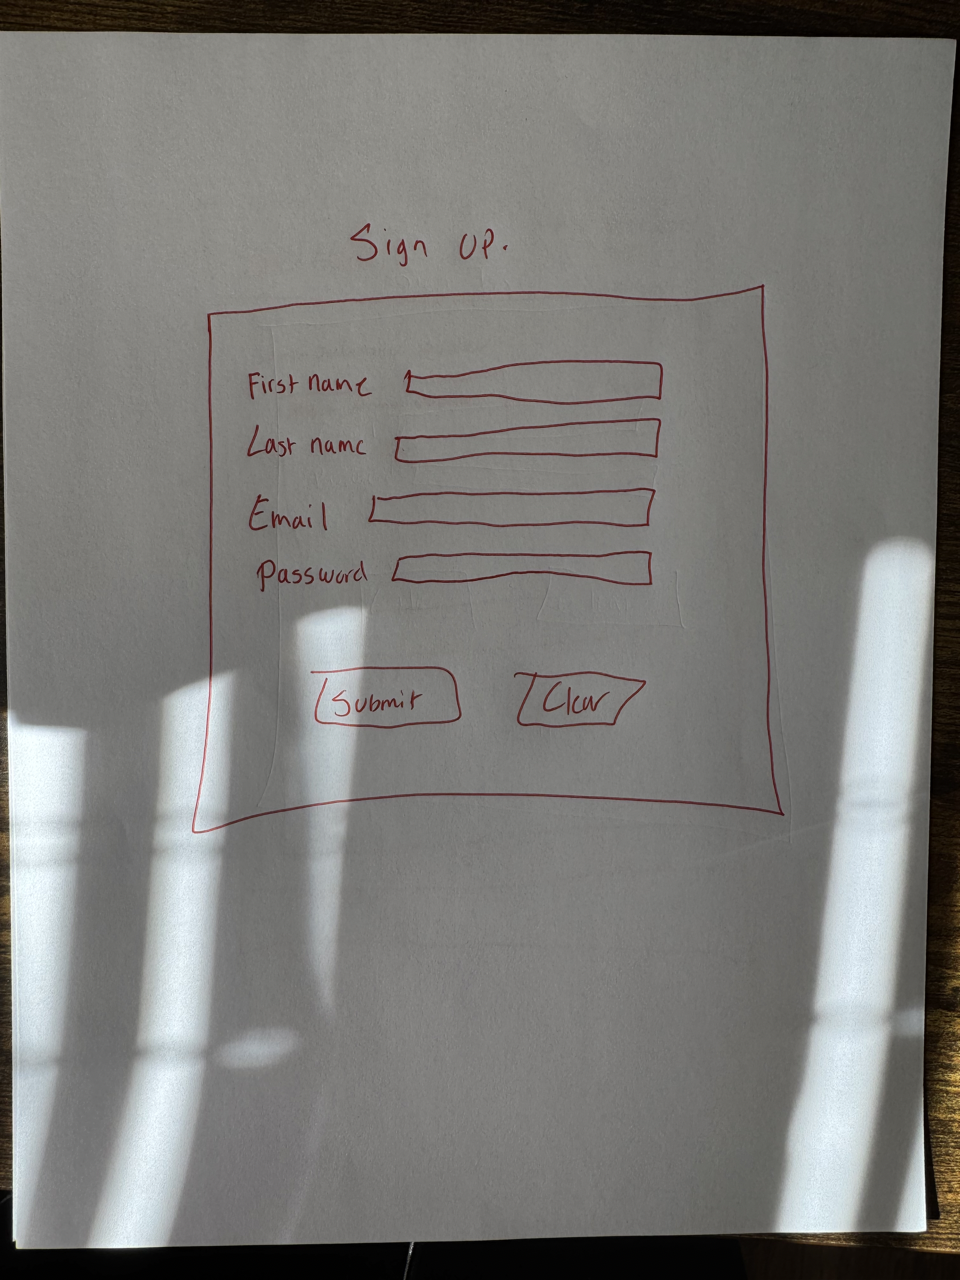 Sign UP.
First name
Last name
Email
Password
Submit Clear